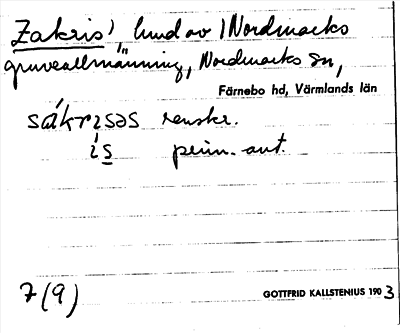 Zakris', hmd av Nordmarks
gruveallmänning, Nordmarks sn,
Färnebo hd, Värmlands län
sákrɩsəs renskr.
ís prim. ant.
7(9)
GOTTFRID KALLSTENIUS 1903